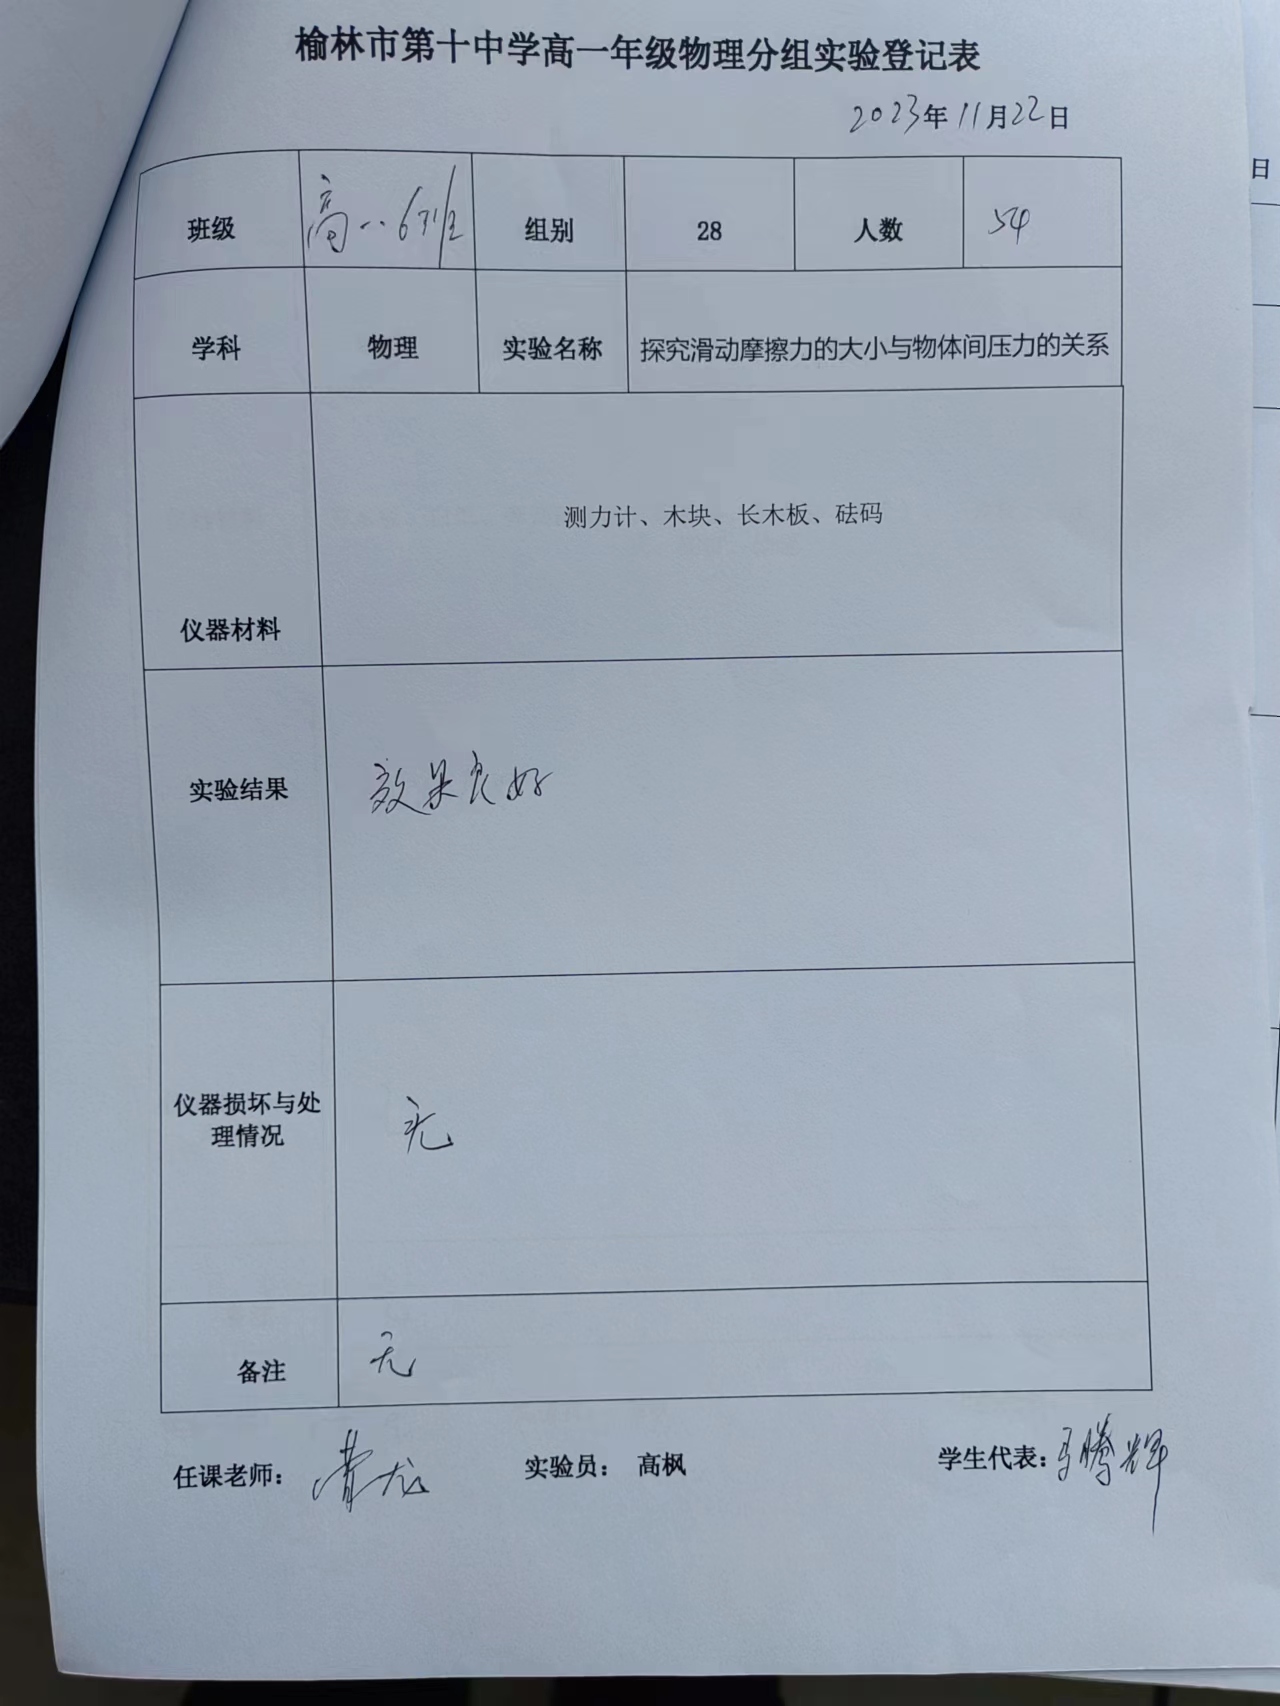 榆林市第十中学高一年级物理分组实验登记表
2023年11月22日
班级 高一.6班 组别 28 人数 54
学科 物理 实验名称 探究滑动摩擦力的大小与物体间压力的关系
测力计、木块、长木板、砝码
仪器材料
实验结果 效果良好
仪器损坏与处
理情况
无
备注 无
任课老师： 实验员： 高枫 学生代表：
日